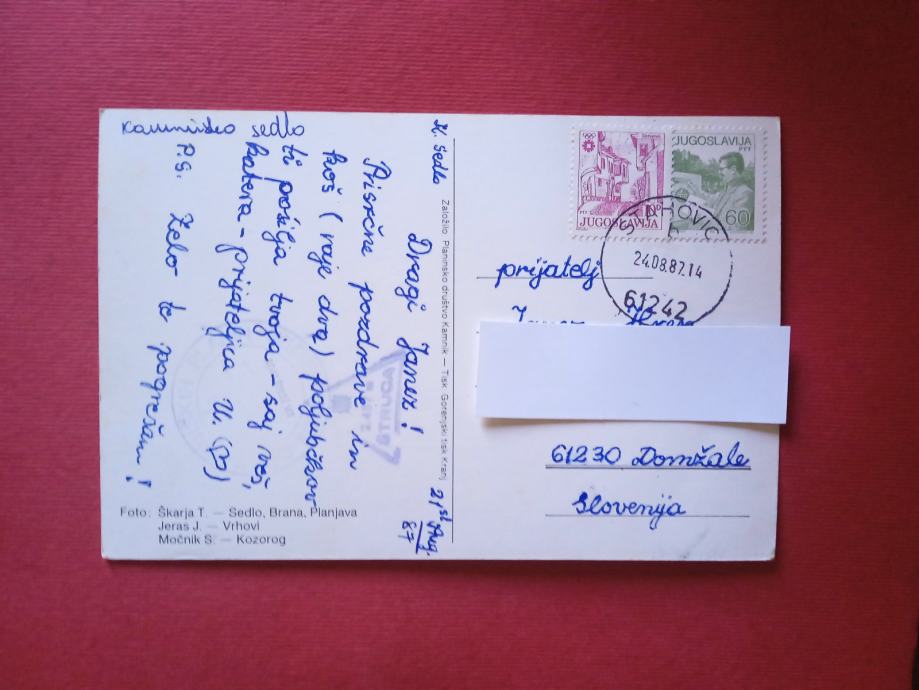 K. Sedlo
21st Aug. 87
Dragi Janez!
Prisrčne pozdrave in
koš (raje dva) poljubčkov
ti pošilja tvoja - saj veš,
katera - prijateljica U. (P)
P.S. Zelo te pogrešam!
Kamniško sedlo
Foto: Škarja T. — Sedlo, Brana, Planjava
Jeras J. — Vrhovi
Močnik S. — Kozorog
Založilo Planinsko društvo Kamnik — Tisk Gorenjski tisk Kranj
STRUCA
PTT 10
JUGOSLAVIJA
JUGOSLAVIJA
PTT
60
24.08.87.14
61242
prijatelj
61230 Domžale
Slovenija